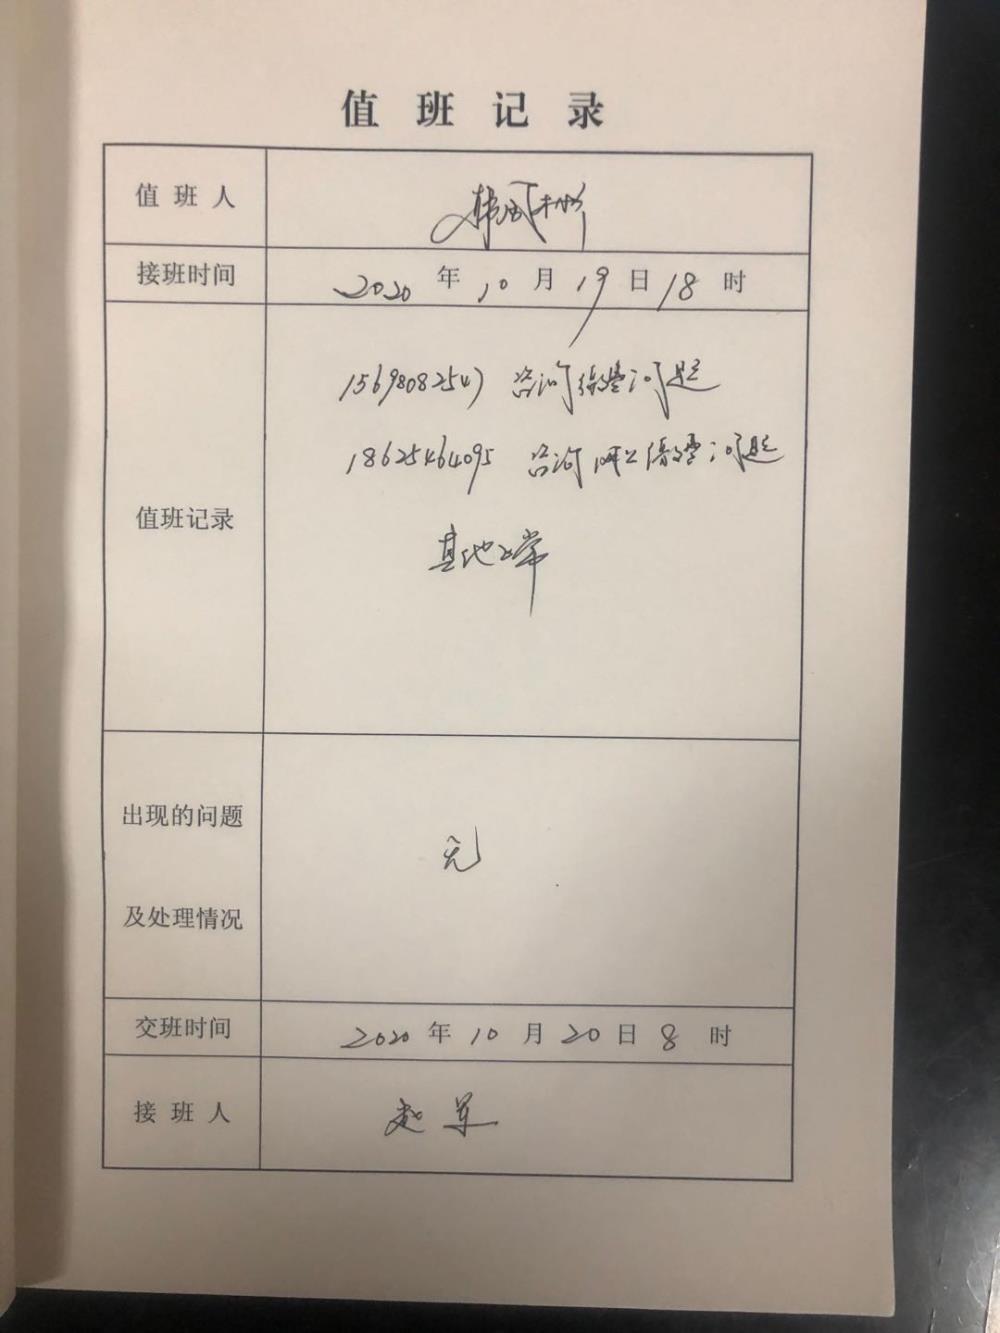 值班记录
值班人 韩凤彬
接班时间 2020年10月19日18时
15698082547 咨询缴费问题
18625464095 咨询网上缴费问题
值班记录
基地正常
出现的问题
无
及处理情况
交班时间 2020年10月20日8时
接班人 赵军